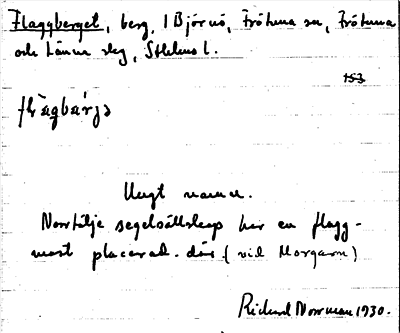 Flaggberget, berg, I Björnö, Frötuna sn, Frötuna
och Länna skg, Sthlms l.
153
flàgbær̀jə
Ungt namn.
Norrtälje segelsällskap har en flagg-
mast placerad där (vid Morgarn)
Rickard Norrman 1930.